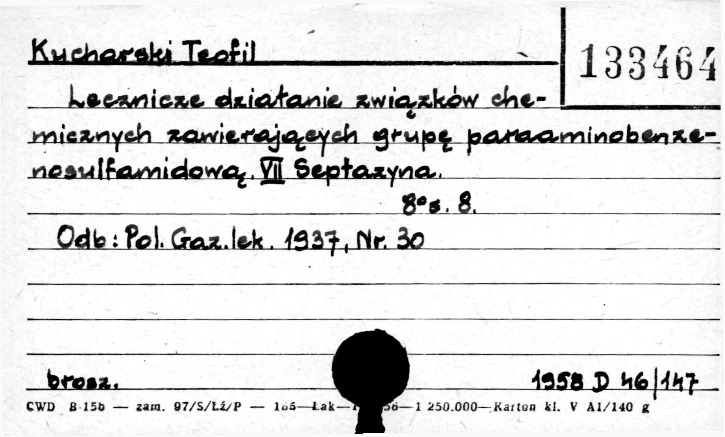 Kucharski Teofil
133464
Lecznicze działanie związków che-
micznych zawierających grupę paraaminobenze-
nosulfamidową. VII Septazyna.
8° s. 8.
Odb: Pol. Gaz. lek. 1937, Nr. 30
brosz.
1958 D 46/147
CWD B-15b — zam. 97/S/Łż/P — Łak— 56—1 250.000—Karton kl. V A1/140 g